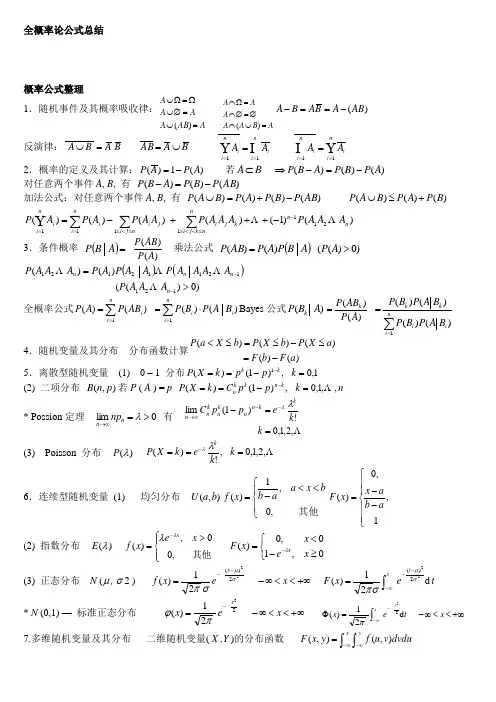 全概率论公式总结
概率公式整理
1．随机事件及其概率吸收律：A∪Ω=Ω A∪∅=A A∪(AB)=A A∩Ω=A A∩∅=∅ A∩(A∪B)=A A−B=AB̅=A−(AB)
反演律：A∪B̅=A̅ B̅ A̅B̅=A̅∪B̅
2．概率的定义及其计算：P(A̅)=1−P(A) 若A⊂B ⇒P(B−A)=P(B)−P(A)
对任意两个事件A, B, 有 P(B−A)=P(B)−P(AB)
加法公式：对任意两个事件A, B, 有 P(A∪B)=P(A)+P(B)−P(AB) P(A∪B)≤P(A)+P(B)
P(Y_{i=1}^{n} A_i)=∑_{i=1}^{n} P(A_i)−∑_{1≤i<j≤n} P(A_iA_j)+∑_{1≤i<j<k≤n} P(A_iA_jA_k)+Λ+(−1)^{n−1}P(A_1A_2ΛA_n)
3．条件概率 P(B|A)=P(AB)/P(A) 乘法公式 P(AB)=P(A)P(B|A) (P(A)>0)
P(A_1A_2ΛA_n)=P(A_1)P(A_2|A_1)ΛP(A_n|A_1A_2ΛA_{n−1})
(P(A_1A_2ΛA_{n−1})>0)
全概率公式P(A)=∑_{i=1}^{n} P(AB_i)=∑_{i=1}^{n} P(B_i)·P(A|B_i) Bayes公式P(B_k|A)=P(AB_k)/P(A)=P(B_k)P(A|B_k)/∑_{i=1}^{n} P(B_i)P(A|B_i)
4．随机变量及其分布 分布函数计算P(a<X≤b)=P(X≤b)−P(X≤a)
=F(b)−F(a)
5．离散型随机变量 (1) 0－1 分布P(X=k)=p^k(1−p)^{1−k}, k=0,1
(2) 二项分布 B(n,p)若P ( A ) = p P(X=k)=C_n^k p^k(1−p)^{n−k}, k=0,1,Λ,n
* Possion定理 lim_{n→∞} np_n=λ>0 有 lim_{n→∞} C_n^k p_n^k(1−p_n)^{n−k}=e^{−λ} λ^k/k!
k=0,1,2,Λ
(3) Poisson 分布 P(λ) P(X=k)=e^{−λ} λ^k/k!, k=0,1,2,Λ
6．连续型随机变量 (1) 均匀分布 U(a,b) f(x)={1/(b−a), a<x<b; 0, 其他 F(x)={0, ; (x−a)/(b−a), ; 1
(2) 指数分布 E(λ) f(x)={λe^{−λx}, x>0; 0, 其他 F(x)={0, x<0; 1−e^{−λx}, x≥0
(3) 正态分布 N (μ, σ2 ) f(x)=1/(√2π σ) e^{−(x−μ)²/2σ²} −∞<x<+∞ F(x)=1/(√2π σ) ∫_{−∞}^{x} e^{−(t−μ)²/2σ²} d t
* N (0,1) — 标准正态分布 φ(x)=1/√2π e^{−x²/2} −∞<x<+∞ Φ(x)=1/√2π ∫_{−∞}^{x} e^{−t²/2} dt −∞<x<+∞
7.多维随机变量及其分布 二维随机变量( X ,Y )的分布函数 F(x,y)=∫_{−∞}^{x}∫_{−∞}^{y} f(u,v)dvdu